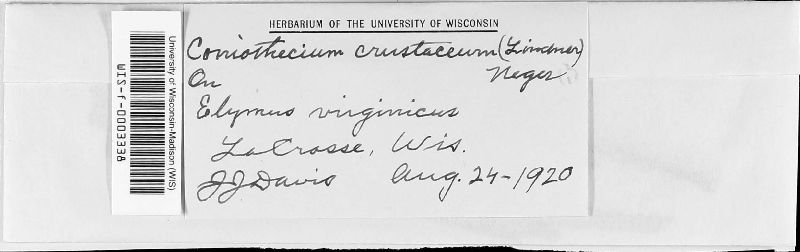 HERBARIUM OF THE UNIVERSITY OF WISCONSIN
Coniothecium crustaceum (Lindner)
Neger
On
Elymus virginicus
LaCrosse, Wis.
JJDavis Aug. 24-1920
University of Wisconsin-Madison (WIS)
WIS-F-0003338